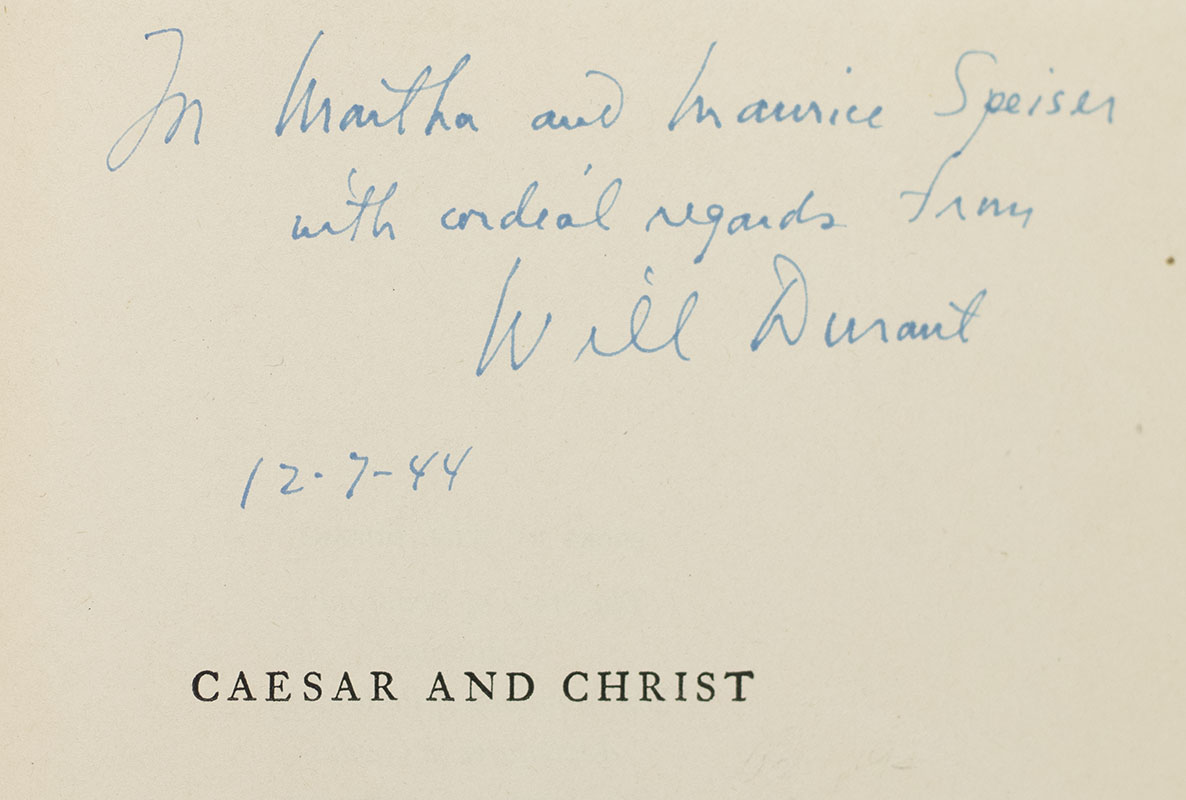 For Martha and Maurice Speiser
with cordial regards from
Will Durant
12-7-44
CAESAR AND CHRIST